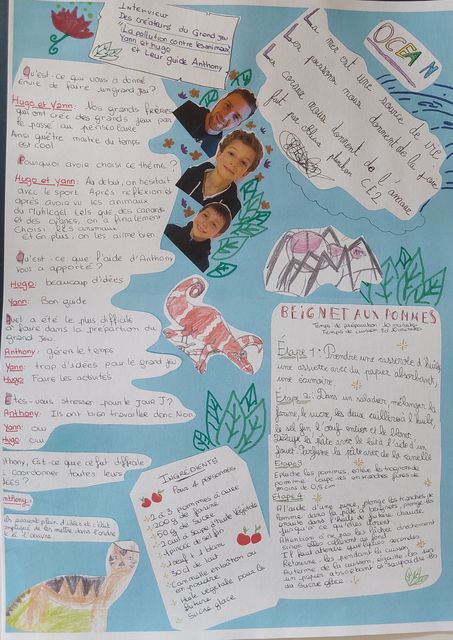 Interview
Des créateurs du Grand Jeu
"La pollution contre les animaux"
Yann et Hugo
et Leur guide Anthony
Qu'est-ce qui vous a donné
envie de faire un grand jeu?
Hugo et Yann: Nos grands frères
qui ont créé des grands jeux par
le passé au périscolaire
Ainsi qu'être maître du temps
est cool
Pourquoi avoir choisi ce thème?
Hugo et Yann: Au début, on hésitait
avec le sport. Après réflexion et
après avoir vu les animaux
du Muhlegel tels que des canards
et des cygnes, on a finalement
Choisi les animaux
et en plus, on les aime bien
Qu'est-ce que l'aide d'Anthony
Vous a apporté?
Hugo: beaucoup d'idées
Yann: Bon guide
Quel a été le plus difficile
à faire dans la préparation du
Grand jeu
Anthony: gérer le temps
Yann: trop d'idées pour le grand jeu
Hugo: Faire les activités
Êtes-vous stresser pour le jour J?
Anthony: Ils ont bien travaillée donc Non
Yann: oui
Hugo: oui
nthony, Est-ce que ce fut difficile
coordonner toutes leurs
ées?
nthony:
plein d'idées
OCEAN
La mer est une source de vie
Les poissons nous donnent de la joie
nous donnent de l'amour
fait par
CE2
BEIGNET AUX POMMES
Temps de préparation 20 minutes
Temps de cuisson
Étape 1: Prendre une casserole d'huile,
une assiette avec du papier absorbant,
une écumoire
Étape 2: Dans un saladier, mélanger la
farine, le sucre, les deux cuillères d'huile,
le sel fin, l'oeuf entier et le blanc.
Délaye la pâte avec le lait à l'aide d'un
fouet. Parfume la pâte avec de la cannelle
Étape 3
Épluche les pommes, enlève les trognons de
pomme. Coupe les en tranches fines de
moins de 0,5 cm
Étape 4
A l'aide d'une pince, plonge les tranches de
pomme dans la pâte à beignets, plonge les
ensuite dans l'huile de friture chaude
Attention à ne pas les lâcher directement
sinon elles colleront au fond
Il faut attendre quelques secondes
Retourne les pendant la cuisson.
Au terme de la cuisson, égoutte les sur
un papier absorbant et saupoudre les
de sucre glace.
INGRÉDIENTS
Pour 4 personnes
2 à 3 pommes à cuire
200 g de farine
50 g de sucre
2 cuil. à soupe d'huile végétale
1 pincée de sel fin
1 oeuf + 1 blanc
30 cl de lait
Cannelle en bâton ou
en poudre
Huile végétale pour la
friture
Sucre glace